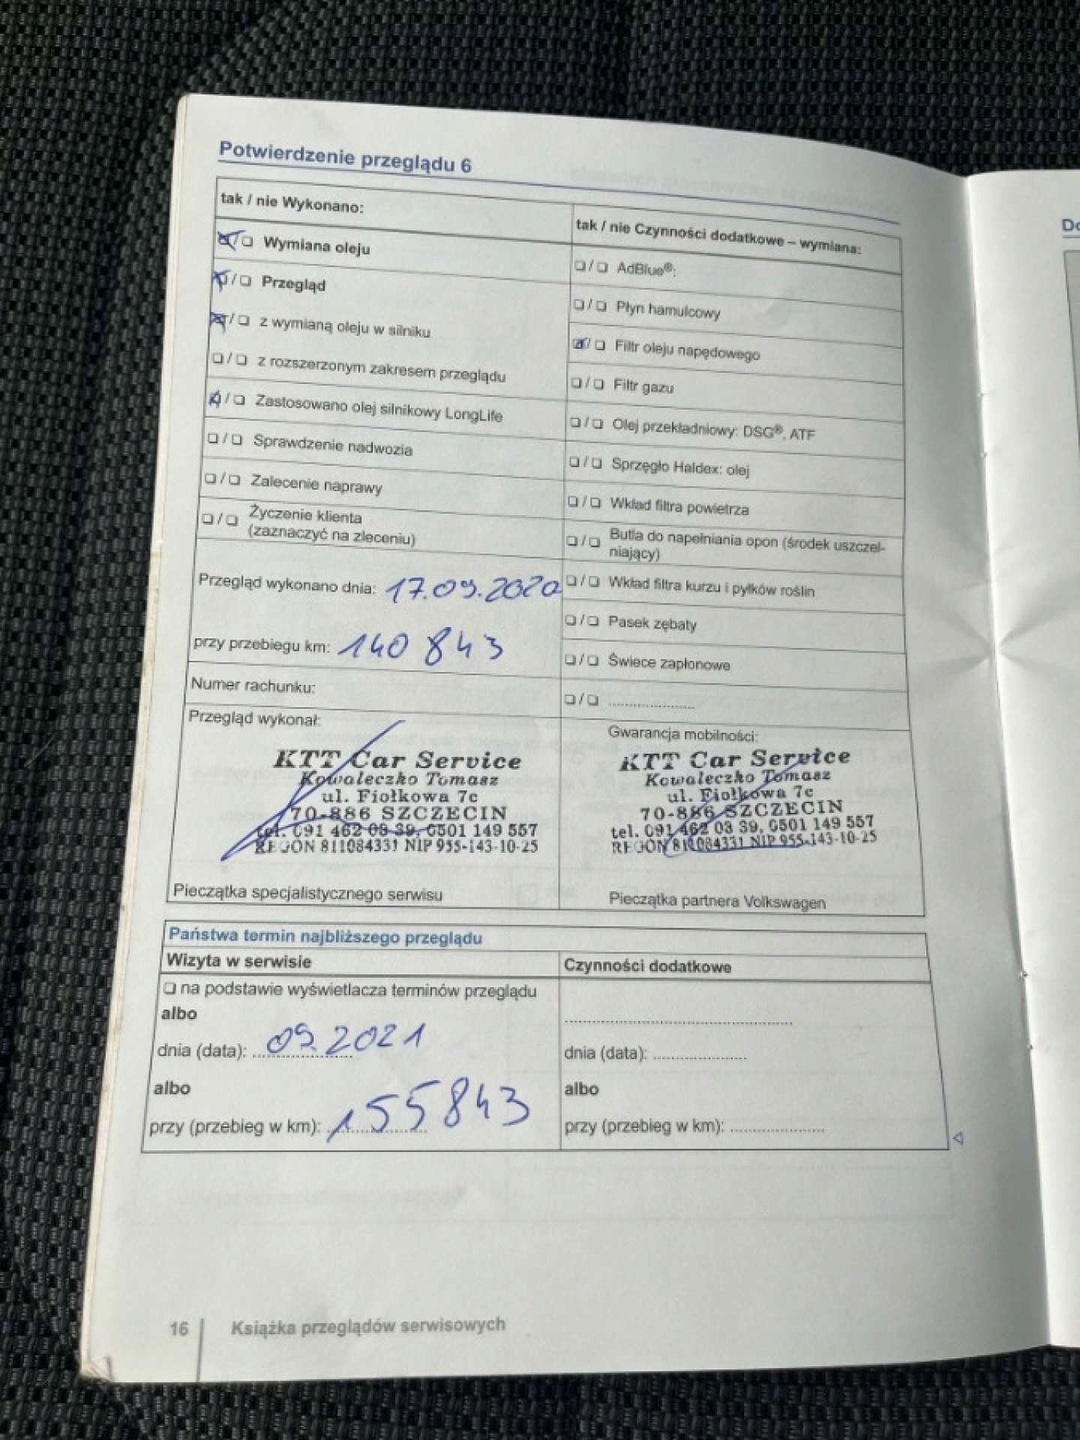 Potwierdzenie przeglądu 6
tak / nie Wykonano:
❏/❏ Wymiana oleju
❏/❏ Przegląd
❏/❏ z wymianą oleju w silniku
❏/❏ z rozszerzonym zakresem przeglądu
❏/❏ Zastosowano olej silnikowy LongLife
❏/❏ Sprawdzenie nadwozia
❏/❏ Zalecenie naprawy
❏/❏ Życzenie klienta
(zaznaczyć na zleceniu)
Przegląd wykonano dnia: 17.09.2020
przy przebiegu km: 140 843
Numer rachunku:
tak / nie Czynności dodatkowe – wymiana:
❏/❏ AdBlue®:
❏/❏ Płyn hamulcowy
❏/❏ Filtr oleju napędowego
❏/❏ Filtr gazu
❏/❏ Olej przekładniowy: DSG®, ATF
❏/❏ Sprzęgło Haldex: olej
❏/❏ Wkład filtra powietrza
❏/❏ Butla do napełniania opon (środek uszczel-
niający)
❏/❏ Wkład filtra kurzu i pyłków roślin
❏/❏ Pasek zębaty
❏/❏ Świece zapłonowe
❏/❏ ......................
Przegląd wykonał:
KTT Car Service
Kowaleczko Tomasz
ul. Fiołkowa 7c
70-886 SZCZECIN
tel. 091 462 03 39, 0501 149 557
REGON 811084331 NIP 955-143-10-25
Pieczątka specjalistycznego serwisu
Gwarancja mobilności:
KTT Car Service
Kowaleczko Tomasz
ul. Fiołkowa 7c
70-886 SZCZECIN
tel. 091 462 03 39, 0501 149 557
REGON 811084331 NIP 955-143-10-25
Pieczątka partnera Volkswagen
Państwa termin najbliższego przeglądu
Wizyta w serwisie
❏ na podstawie wyświetlacza terminów przeglądu
albo
dnia (data): 09.2021
albo
przy (przebieg w km): 155843
Czynności dodatkowe
......................
dnia (data): ......................
albo
przy (przebieg w km): ......................
16 Książka przeglądów serwisowych